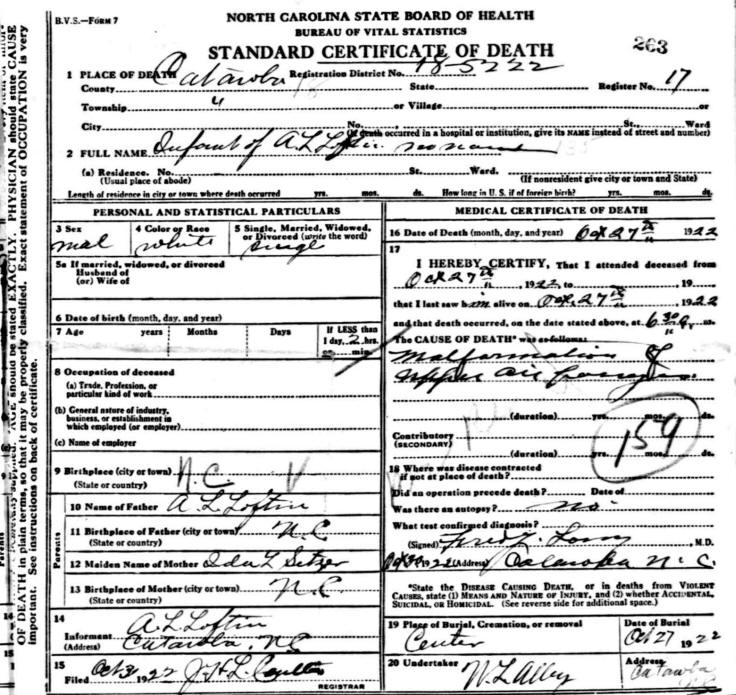 B.V.S.—FORM 7
NORTH CAROLINA STATE BOARD OF HEALTH
BUREAU OF VITAL STATISTICS
STANDARD CERTIFICATE OF DEATH
263
1 PLACE OF DEATH Catawba Registration District No. 18-5222
County State Register No. 17
Township 4 or Village or
City No. St., Ward
(If death occurred in a hospital or institution, give its NAME instead of street and number)
2 FULL NAME Infant of A L Loftin no name
(a) Residence. No. St. Ward.
(Usual place of abode) (If nonresident give city or town and State)
Length of residence in city or town where death occurred yrs. mos. ds. How long in U. S. if of foreign birth? yrs. mos. ds.
PERSONAL AND STATISTICAL PARTICULARS
3 Sex 4 Color or Race 5 Single, Married, Widowed, or Divorced (write the word)
mal white single
5a If married, widowed, or divorced
Husband of
(or) Wife of
6 Date of birth (month, day, and year)
7 Age years Months Days If LESS than
1 day, 2 hrs.
or min.
8 Occupation of deceased
(a) Trade, Profession, or
particular kind of work
(b) General nature of industry,
business, or establishment in
which employed (or employer)
(c) Name of employer
9 Birthplace (city or town) N.C
(State or country)
Parents
10 Name of Father A. L Loftin
11 Birthplace of Father (city or town) N.C
(State or country)
12 Maiden Name of Mother Ida L Setzer
13 Birthplace of Mother (city or town) N.C
(State or country)
14 A L Loftin
Informant
(Address) Catawba, NC
15
Filed Oct 31 1922 J. H. L.
REGISTRAR
MEDICAL CERTIFICATE OF DEATH
16 Date of Death (month, day, and year) Oct 27th 1922
17
I HEREBY CERTIFY, That I attended deceased from
Oct 27th, 1922 to 19
that I last saw him alive on Oct. 27th 1922
and that death occurred, on the date stated above, at 6 30 a. m.
The CAUSE OF DEATH* was as follows:
Malformation of
upper air passages
(duration) yrs. mos. ds.
Contributory
(SECONDARY)
(duration) yrs. mos. ds.
159
18 Where was disease contracted
if not at place of death?
Did an operation precede death? Date of
Was there an autopsy? no
What test confirmed diagnosis?
(Signed) Fred Y. Long, M.D.
Oct 30 1922 (Address) Catawba N. C.
*State the DISEASE CAUSING DEATH, or in deaths from VIOLENT
CAUSES, state (1) MEANS AND NATURE OF INJURY, and (2) whether ACCIDENTAL,
SUICIDAL, OR HOMICIDAL. (See reverse side for additional space.)
19 Place of Burial, Cremation, or removal Date of Burial
Center Oct 27 1922
20 Undertaker Address
W L Alley Catawba
OF DEATH in plain terms, so that it may be properly classified. Exact statement of OCCUPATION is very
important. See instructions on back of certificate.
AGE should be stated EXACTLY. PHYSICIAN should state CAUSE